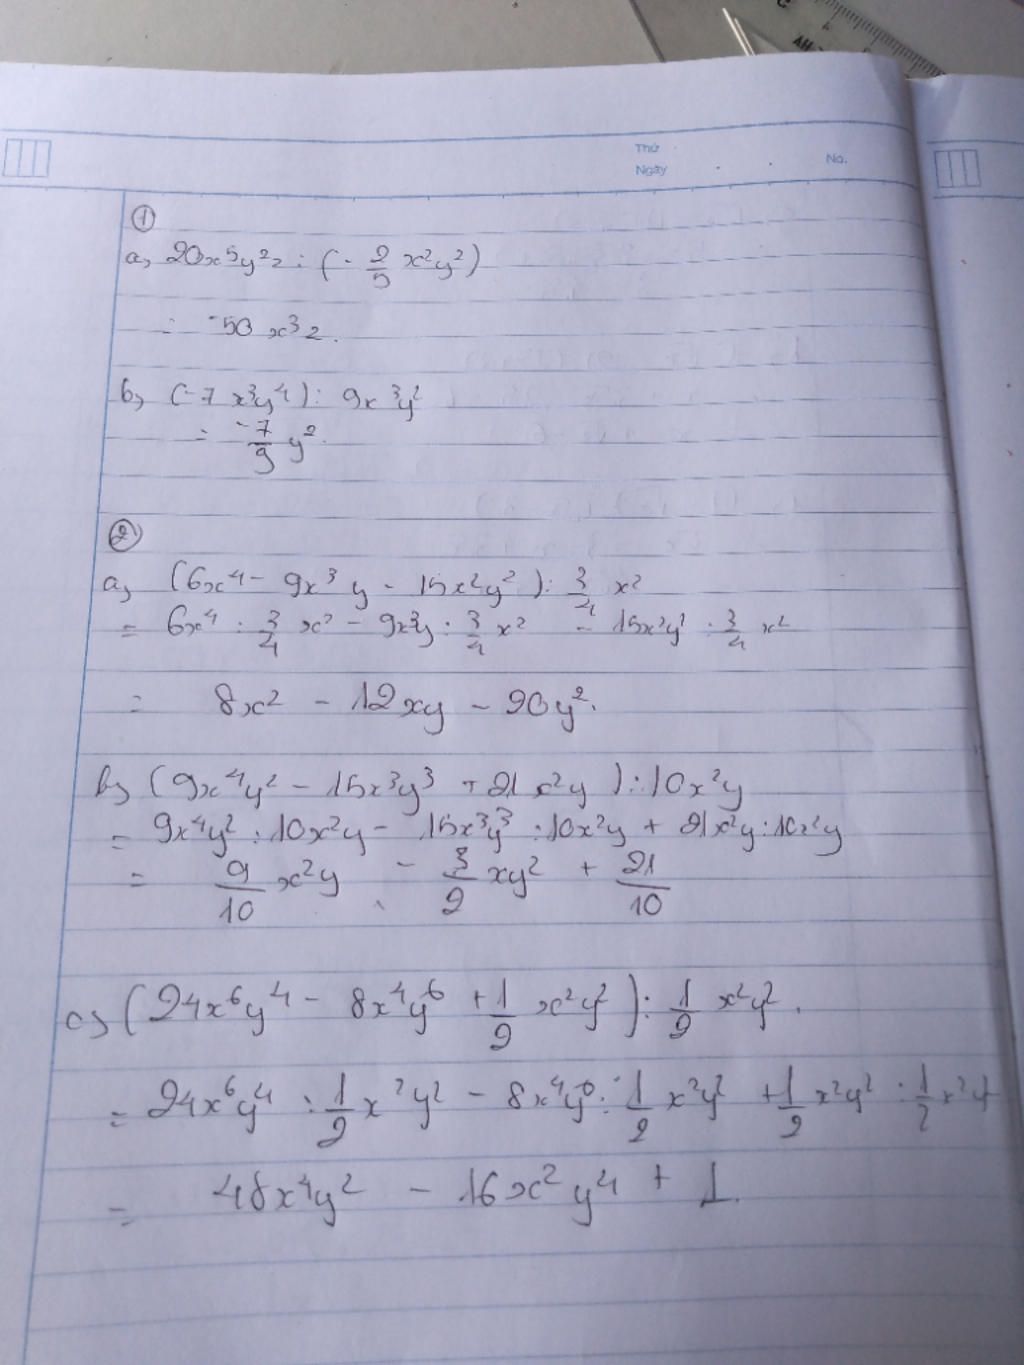 AH
Thứ
Ngày No.
①
a, 20x⁵y²z : (-2/5 x²y²)
= -50 x³z.
b, (-7 x³y⁴) : 9x³y²
= -7/9 y².
②
a, (6x⁴ - 9x³y - 15x²y²) : 3/4 x²
= 6x⁴ : 3/4 x² - 9x³y : 3/4 x² - 15x²y² : 3/4 x²
= 8x² - 12xy - 20y².
b, (9x⁴y² - 15x³y³ + 21x²y) : 10x²y
= 9x⁴y² : 10x²y - 15x³y³ : 10x²y + 21x²y : 10x²y
= 9/10 x²y - 3/2 xy² + 21/10
c, (24x⁶y⁴ - 8x⁴y⁶ + 1/2 x²y²) : 1/2 x²y².
= 24x⁶y⁴ : 1/2 x²y² - 8x⁴y⁶ : 1/2 x²y² + 1/2 x²y² : 1/2 x²y²
= 48x⁴y² - 16x²y⁴ + 1.